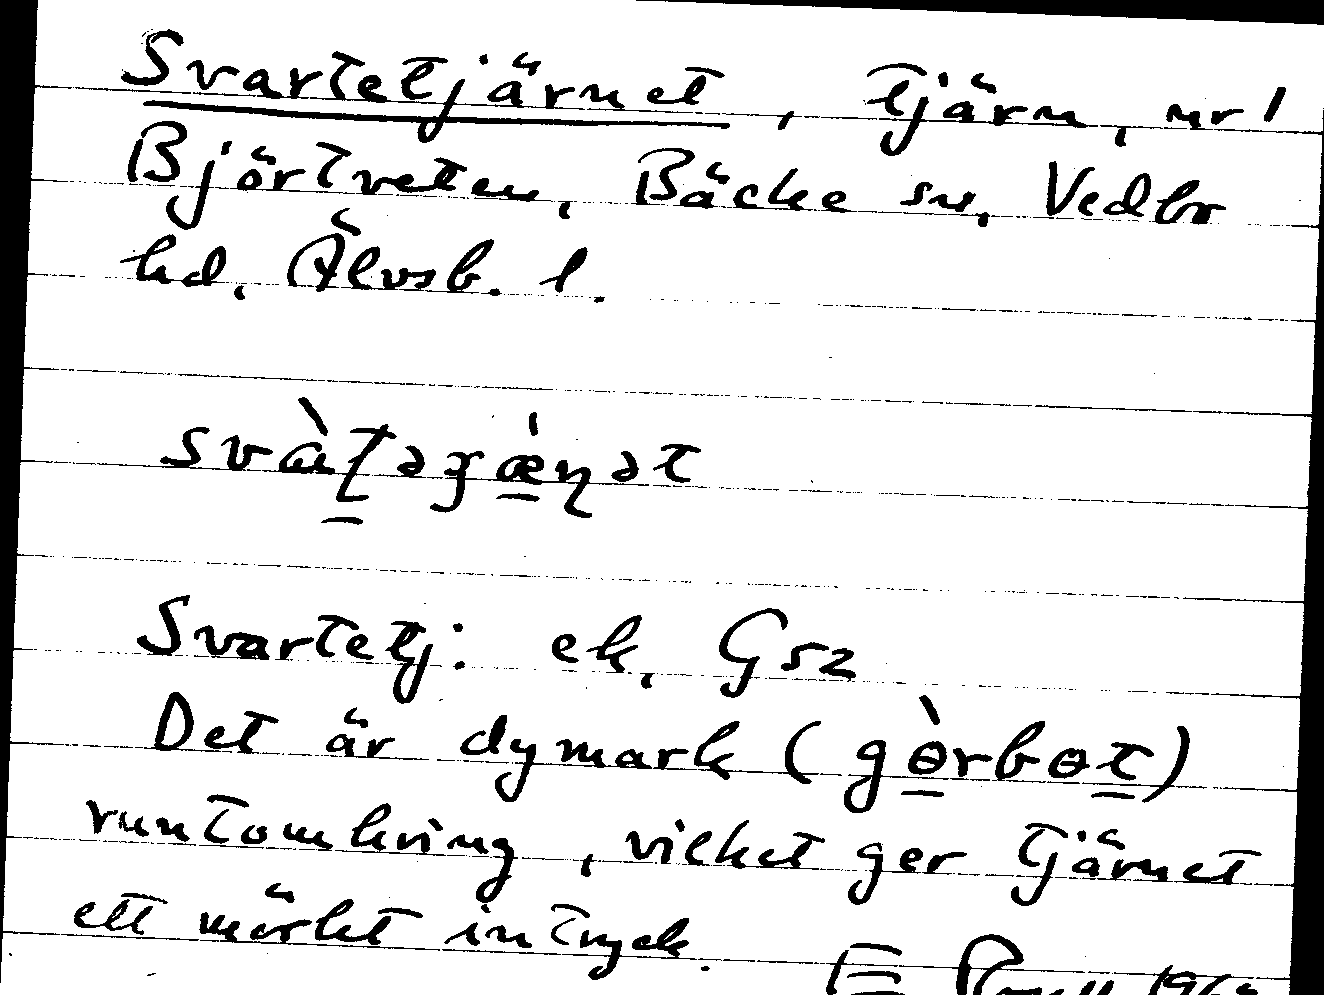 Svartetjärnet, tjärn, nr 1
Björtveten, Bäcke sn, Vedbo
hd, Älvsb. l.
svàʈəʒæ̀ɳət
Svartetj: ek, Gsz
Det är dymark (gɵ̀rbɵt)
runtomkring, vilket ger tjärnet
ett mörkt intryck.